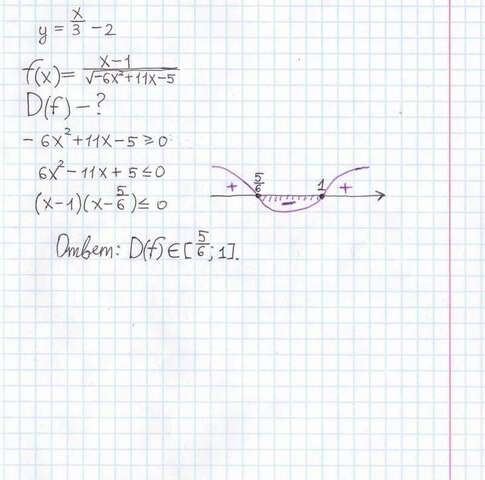 y = x/3 − 2
f(x) = (x−1)/√(−6x²+11x−5)
D(f) − ?
−6x²+11x−5 ≥ 0
6x²−11x+5 ≤ 0
(x−1)(x−5/6) ≤ 0
+ 5/6 − 1 +
Ответ: D(f) ∈ [5/6; 1].